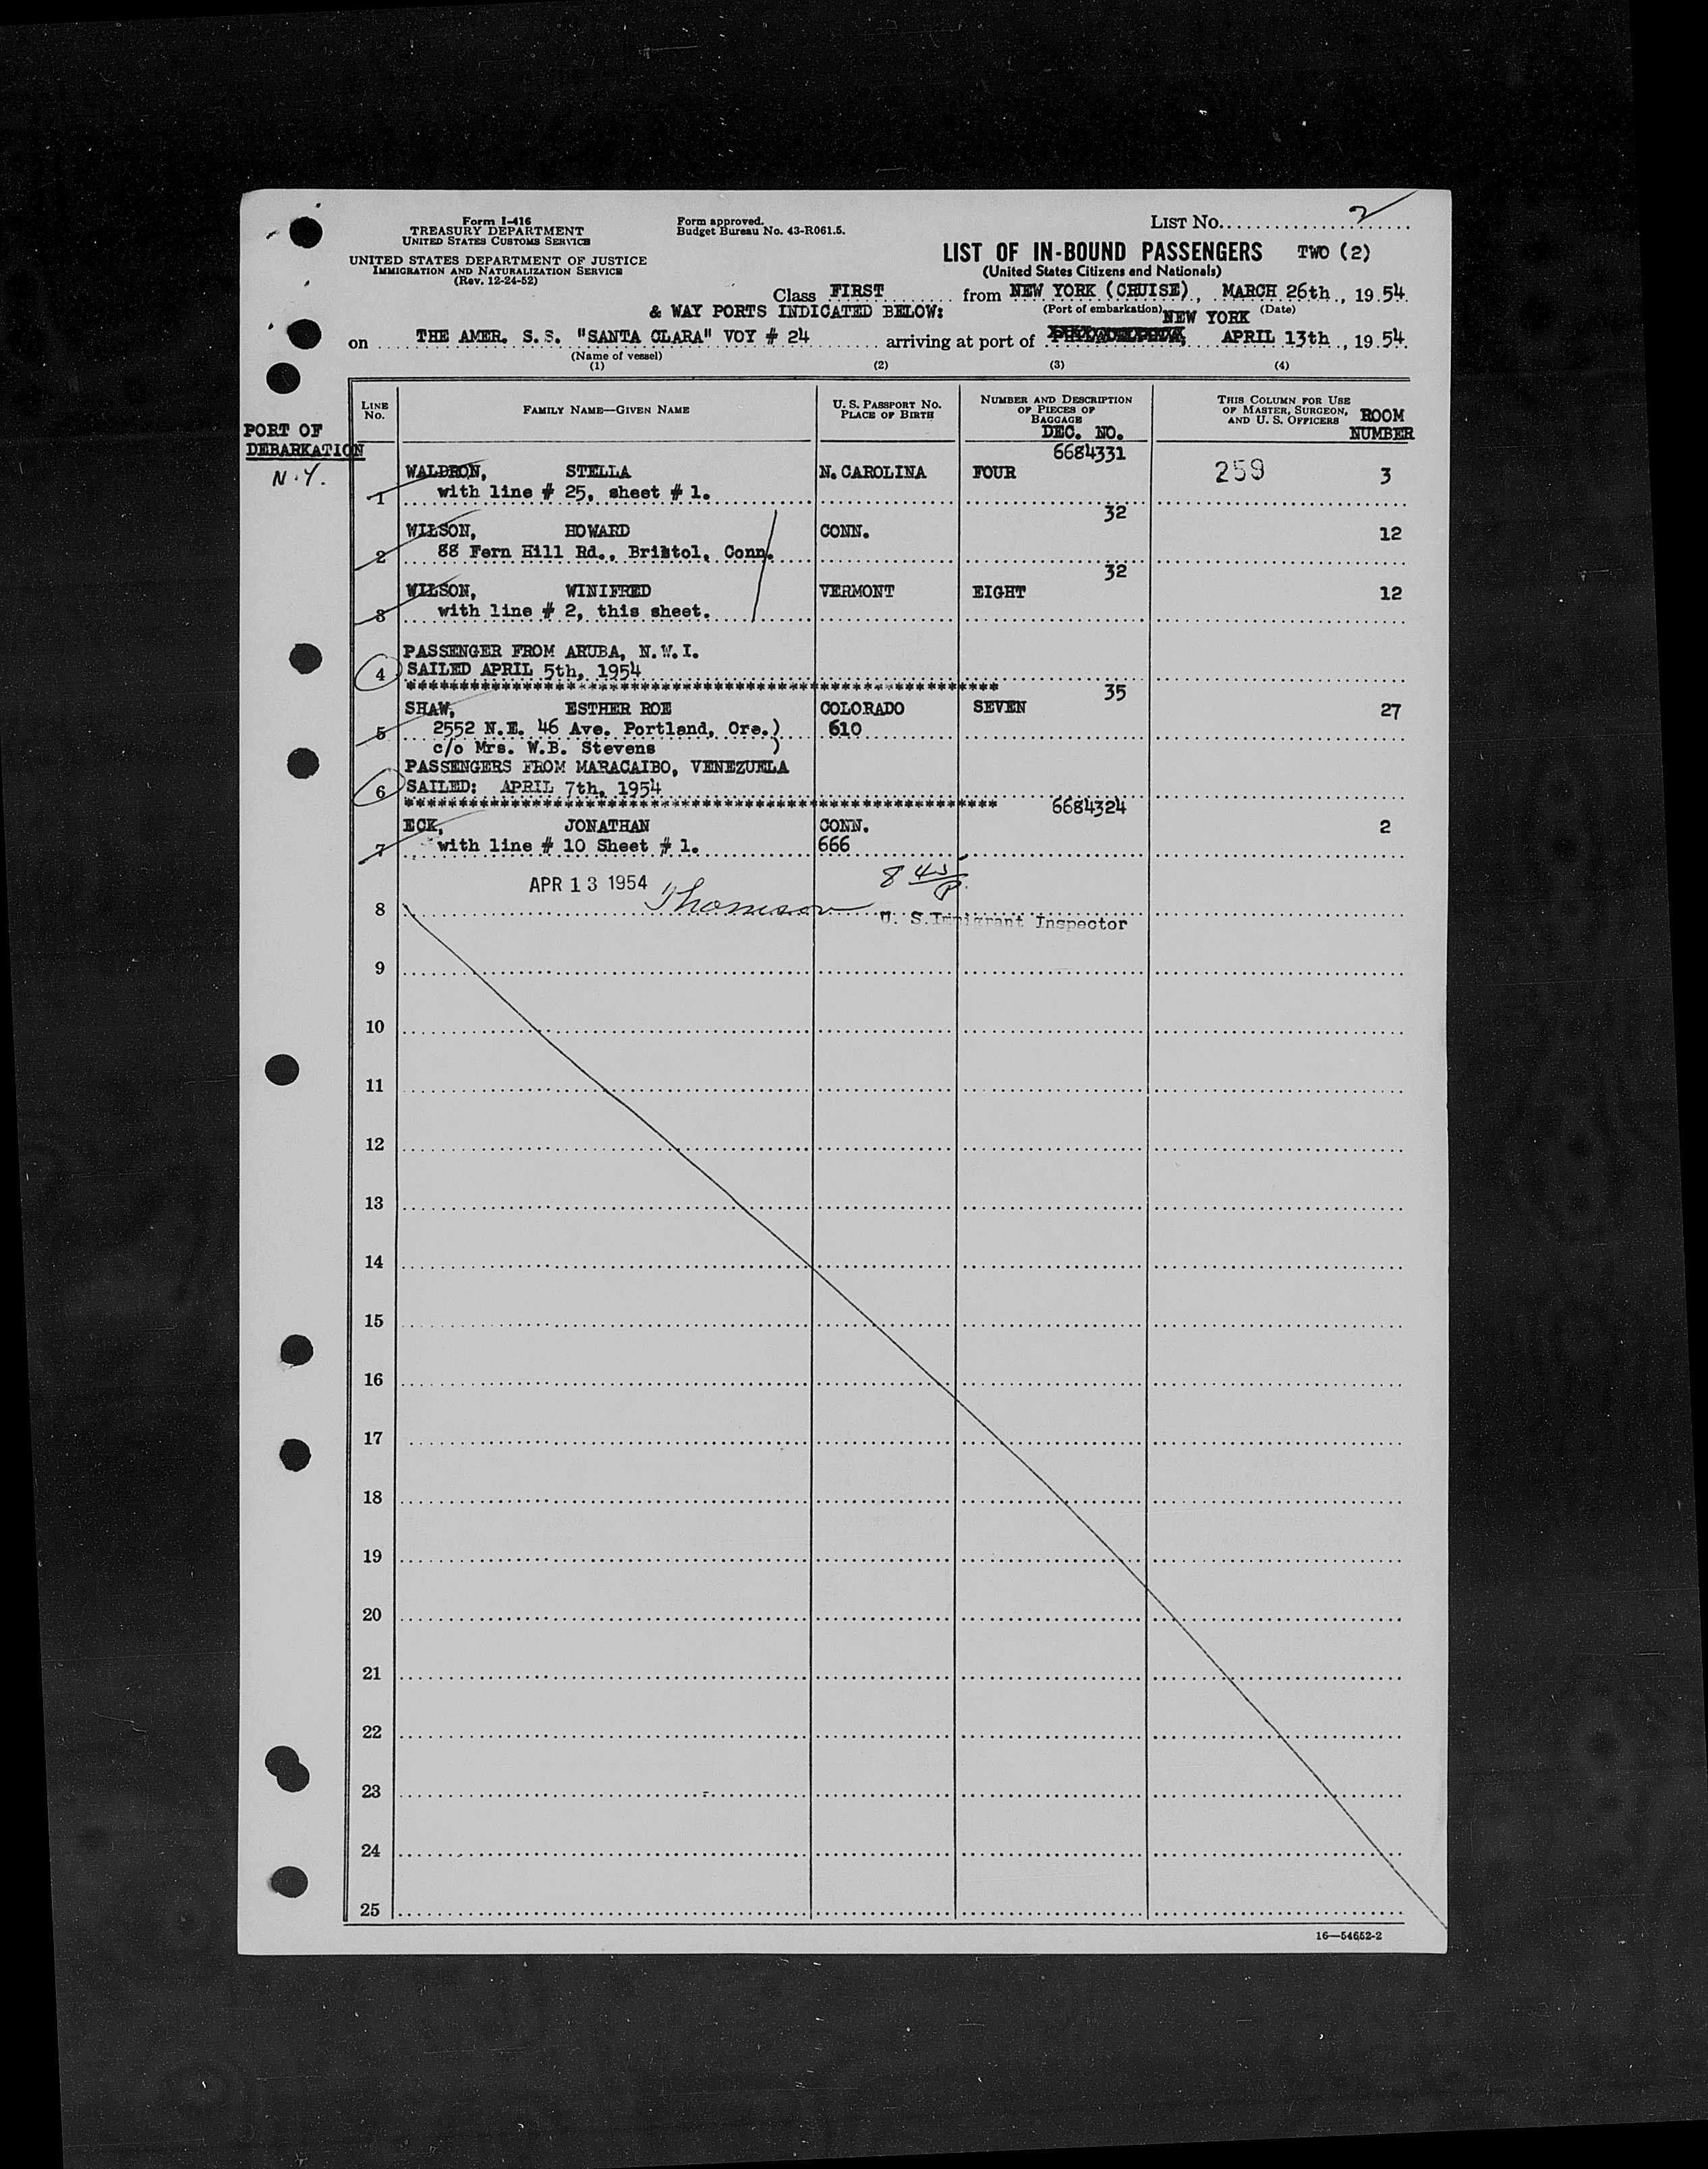 Form I-416
TREASURY DEPARTMENT
UNITED STATES CUSTOMS SERVICE
UNITED STATES DEPARTMENT OF JUSTICE
IMMIGRATION AND NATURALIZATION SERVICE
(Rev. 12-24-52)
Form approved.
Budget Bureau No. 43-R061.5.
LIST No. 2
LIST OF IN-BOUND PASSENGERS TWO (2)
(United States Citizens and Nationals)
Class FIRST from NEW YORK (CRUISE), MARCH 26th, 1954.
& WAY PORTS INDICATED BELOW: (Port of embarkation) (Date)
NEW YORK
on THE AMER. S.S. "SANTA CLARA" VOY # 24 arriving at port of PHILADELPHIA, APRIL 13th, 1954.
(Name of vessel)
(1) (2) (3) (4)
LINE No.
FAMILY NAME—GIVEN NAME
U. S. PASSPORT NO.
PLACE OF BIRTH
NUMBER AND DESCRIPTION
OF PIECES OF
BAGGAGE
DEC. NO.
THIS COLUMN FOR USE
OF MASTER, SURGEON,
AND U. S. OFFICERS
ROOM
NUMBER
PORT OF
DEBARKATION
N.Y.
6684331
WALDRON, STELLA N. CAROLINA FOUR 259 3
1 with line # 25, sheet # 1.
32
WILSON, HOWARD CONN. 12
2 88 Fern Hill Rd., Bristol, Conn.
32
WILSON, WINIFRED VERMONT EIGHT 12
3 with line # 2, this sheet.
PASSENGER FROM ARUBA, N.W.I.
4 SAILED APRIL 5th, 1954
************************************************************ 35
SHAW, ESTHER ROE COLORADO SEVEN 27
5 2552 N.E. 46 Ave. Portland, Ore.) 610
c/o Mrs. W.B. Stevens )
PASSENGERS FROM MARACAIBO, VENEZUELA
6 SAILED: APRIL 7th, 1954
************************************************************ 6684324
ECK, JONATHAN CONN. 2
7 with line # 10 Sheet # 1. 666
APR 13 1954 Thomson 8 45/P.
8 U. S. Immigrant Inspector
9
10
11
12
13
14
15
16
17
18
19
20
21
22
23
24
25
16—54652-2